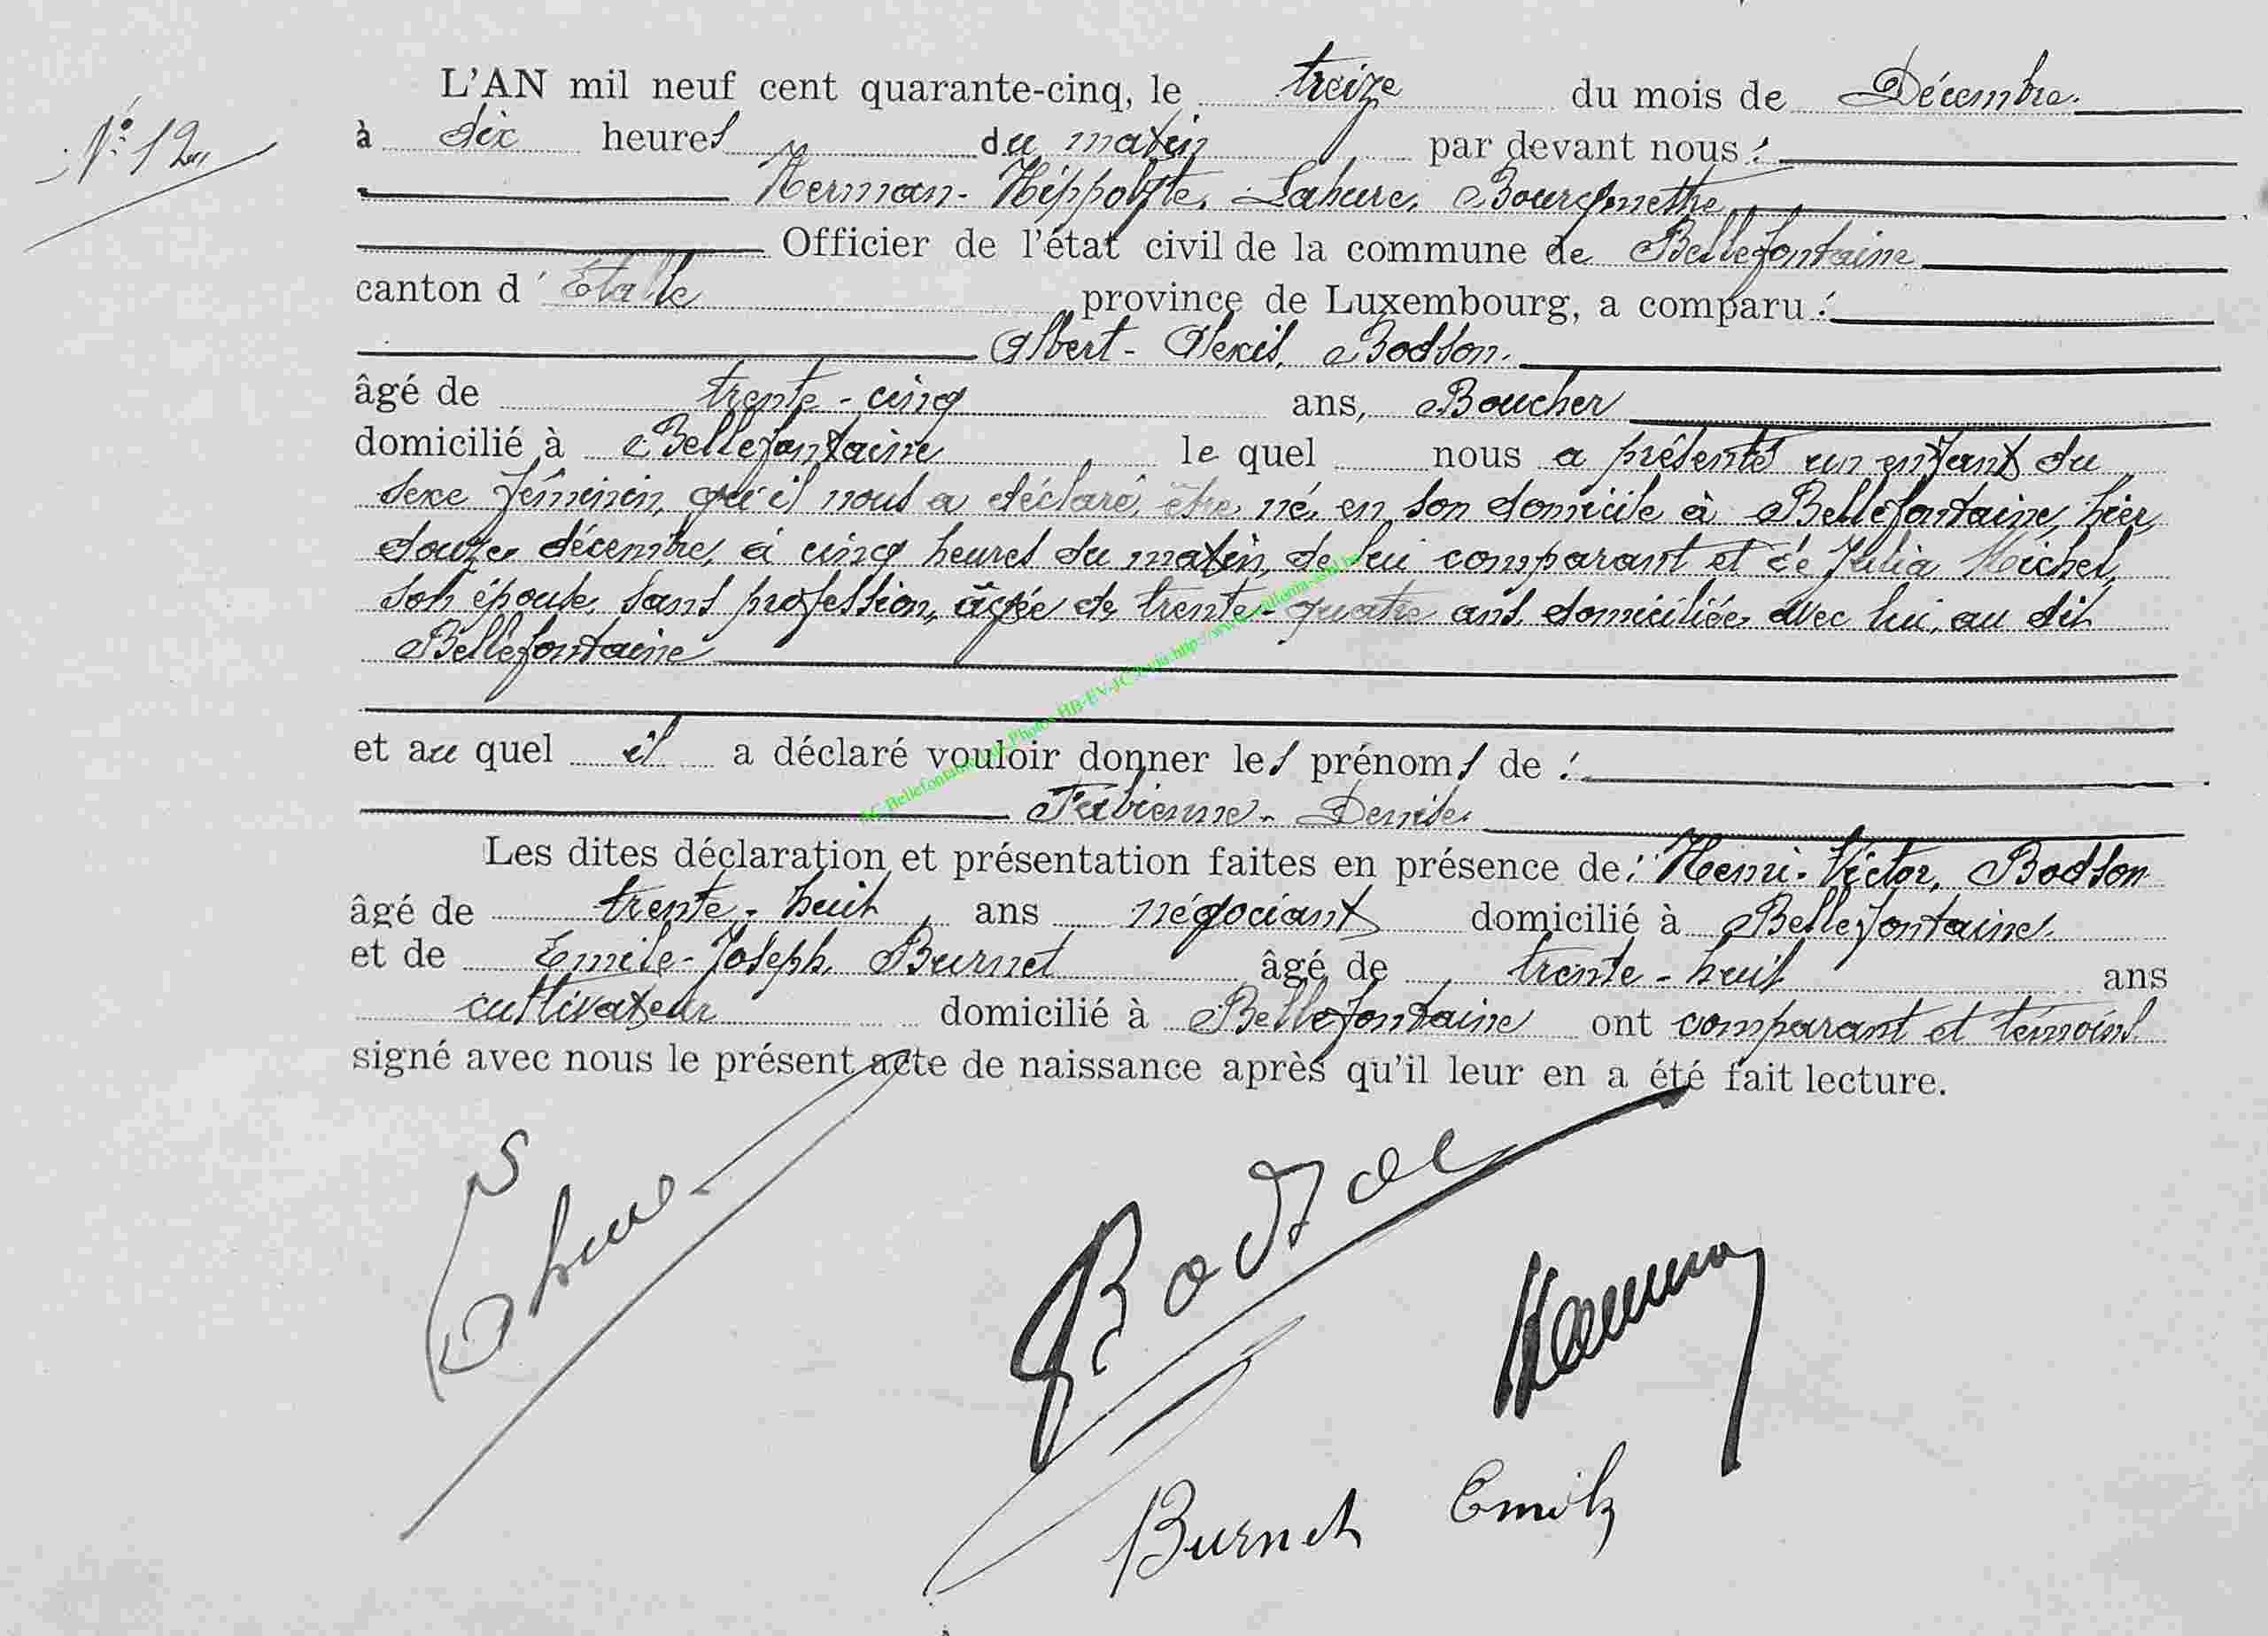 L'AN mil neuf cent quarante-cinq, le treize du mois de Décembre.
N° 12
à dix heures du matin par devant nous :
Herman-Hippolyte, Lahure, Bourgmestre
Officier de l'état civil de la commune de Bellefontaine
canton d'Etalle province de Luxembourg, a comparu :
Albert-Alexis, Bodson.
âgé de trente-cinq ans, Boucher
domicilié à Bellefontaine le quel nous a présenté un enfant du
sexe féminin, qu'il nous a déclaré, être né, en son domicile à Bellefontaine, hier,
douze décembre, à cinq heures du matin, de lui comparant et de Julia Michel,
son épouse, sans profession, âgée de trente-quatre ans, domiciliée avec lui, au dit
Bellefontaine
et au quel il a déclaré vouloir donner les prénoms de :
Fabienne-Denise.
Les dites déclaration et présentation faites en présence de : Henri-Victor, Bodson
âgé de trente-huit ans négociant domicilié à Bellefontaine.
et de Emile-Joseph, Burnet âgé de trente-huit ans
cultivateur domicilié à Bellefontaine ont comparant et témoins
signé avec nous le présent acte de naissance après qu'il leur en a été fait lecture.
Burnet Emile